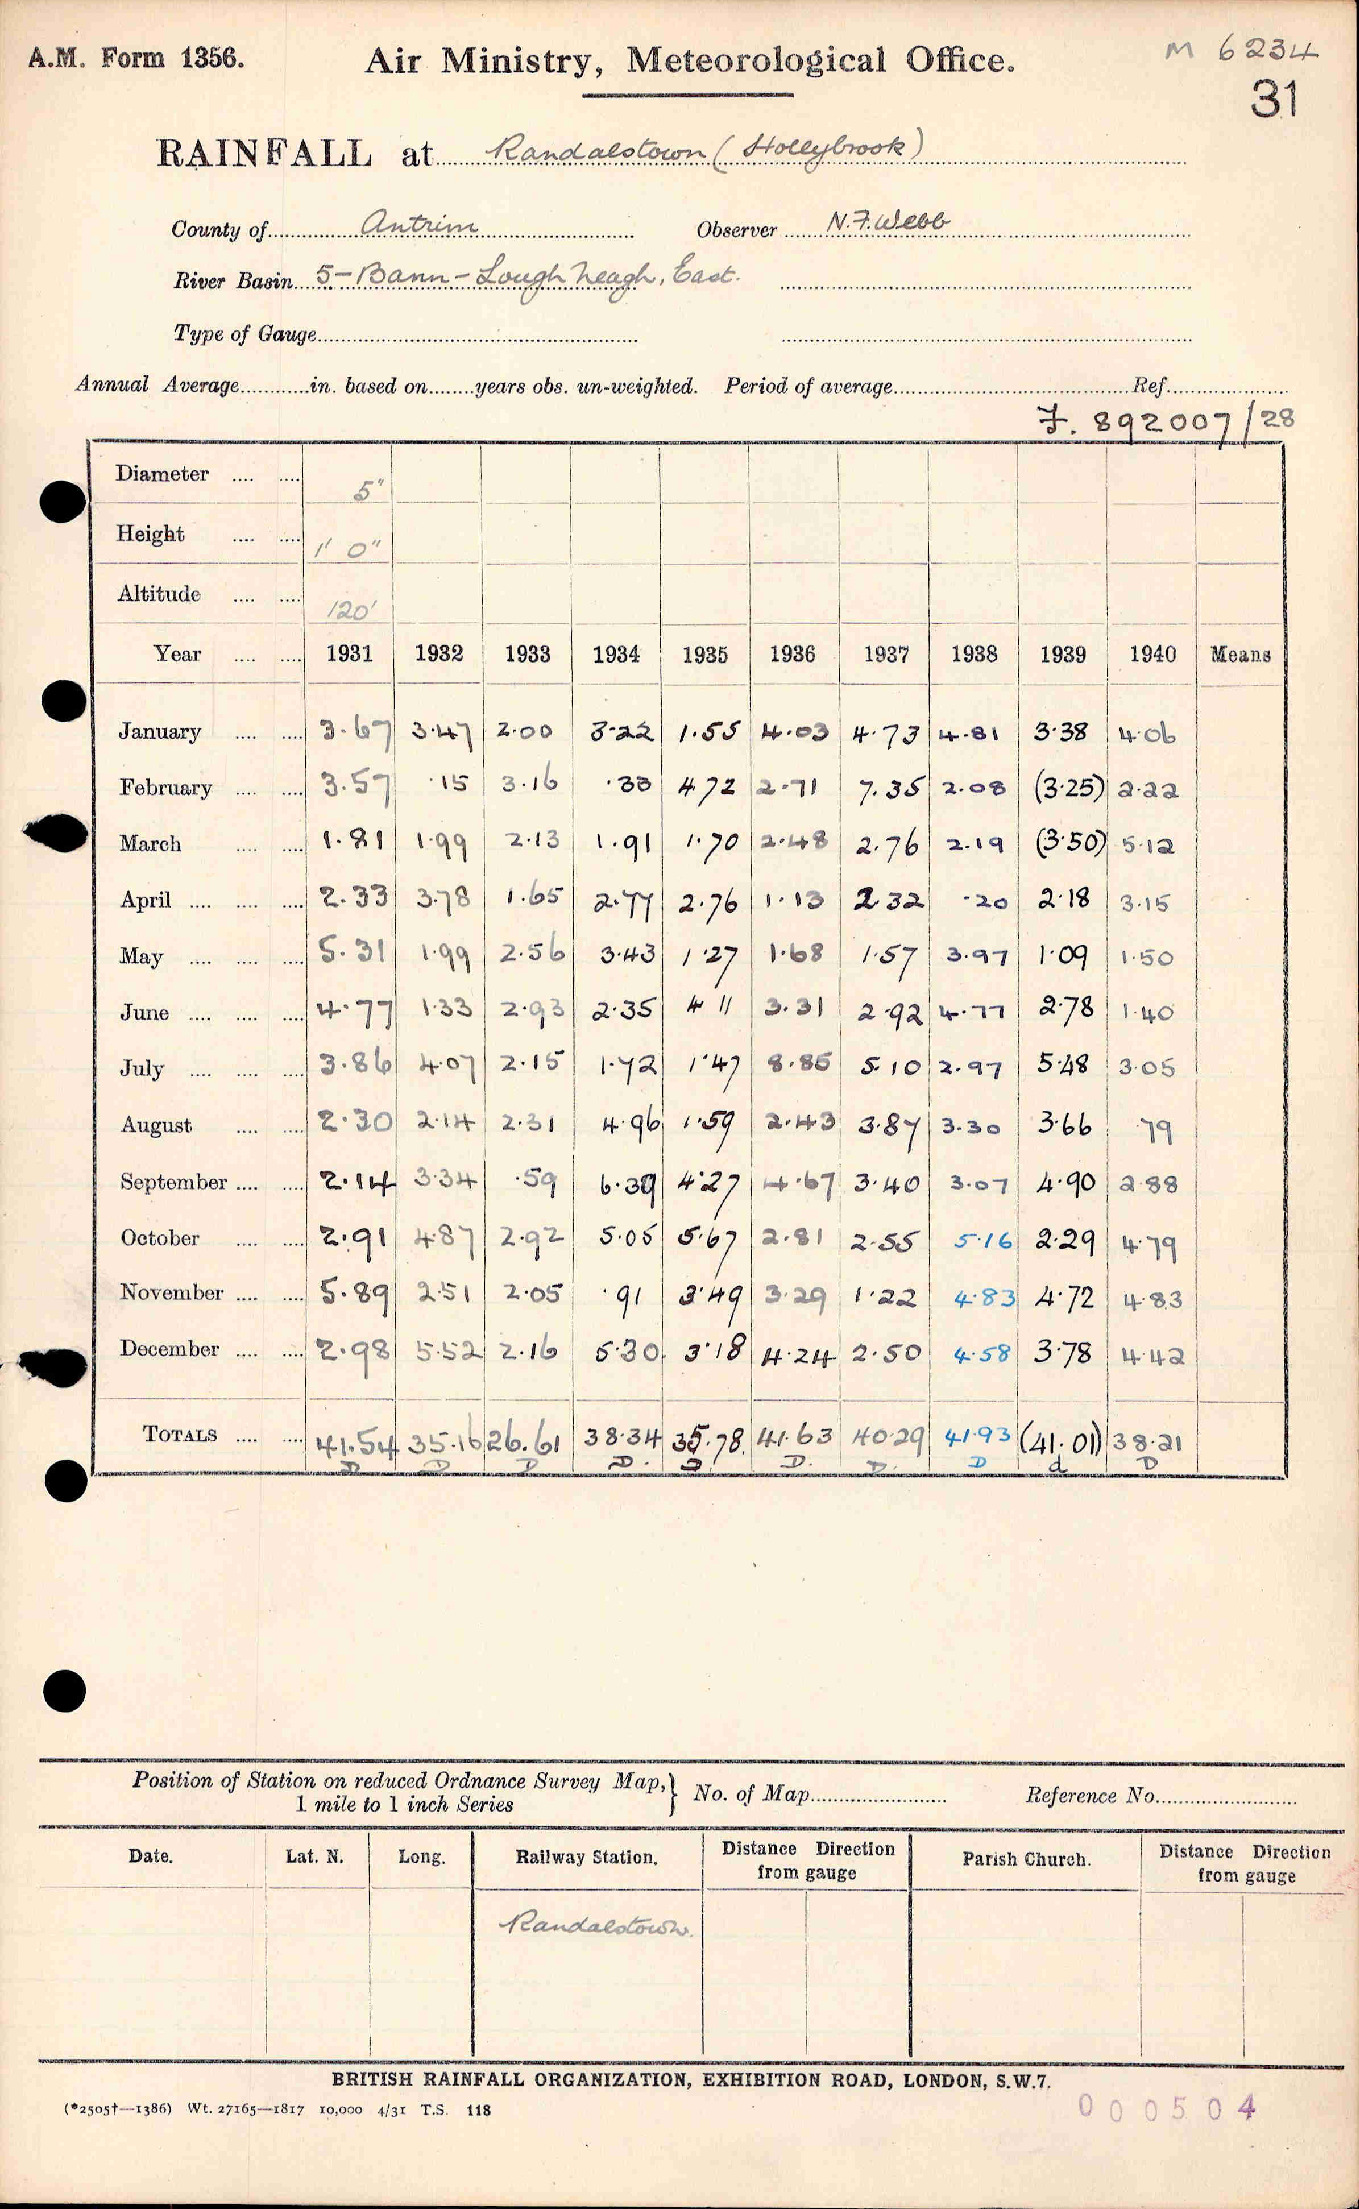 A.M. Form 1356. Air Ministry, Meteorological Office. M 6234
31
RAINFALL at Randalstown (Hollybrook)
County of Antrim Observer N.F. Webb
River Basin 5-Bann-Lough Neagh, East.
Type of Gauge
Annual Average in. based on years obs. un-weighted. Period of average Ref
F. 892007/28
Diameter 5"
Height 1' 0"
Altitude 120'
Year 1931 1932 1933 1934 1935 1936 1937 1938 1939 1940 Means
January 3.67 3.47 2.00 3.22 1.55 4.03 4.73 4.81 3.38 4.06
February 3.57 .15 3.16 .33 4.72 2.71 7.35 2.08 (3.25) 2.22
March 1.81 1.99 2.13 1.91 1.70 2.48 2.76 2.19 (3.50) 5.12
April 2.33 3.78 1.65 2.77 2.76 1.13 2.32 .20 2.18 3.15
May 5.31 1.99 2.56 3.43 1.27 1.68 1.57 3.97 1.09 1.50
June 4.77 1.33 2.93 2.35 4 11 3.31 2.92 4.77 2.78 1.40
July 3.86 4.07 2.15 1.72 1.47 8.85 5.10 2.97 5.48 3.05
August 2.30 2.14 2.31 4.96 1.59 2.43 3.87 3.30 3.66 .79
September 2.14 3.34 .59 6.39 4.27 4.67 3.40 3.07 4.90 2.88
October 2.91 4.87 2.92 5.05 5.67 2.81 2.55 5.16 2.29 4.79
November 5.89 2.51 2.05 .91 3.49 3.29 1.22 4.83 4.72 4.83
December 2.98 5.52 2.16 5.30 3.18 4.24 2.50 4.58 3.78 4.42
TOTALS 41.54 35.16 26.61 38.34 35.78 41.63 40.29 41.93 (41.01) 38.21
D D D D. D D. D. D d D
Position of Station on reduced Ordnance Survey Map, } No. of Map Reference No.
1 mile to 1 inch Series
Date. Lat. N. Long. Railway Station. Distance Direction from gauge Parish Church. Distance Direction from gauge
Randalstown.
BRITISH RAINFALL ORGANIZATION, EXHIBITION ROAD, LONDON, S.W.7.
(*2505†—1386) Wt. 27165—1817 10,000 4/31 T.S. 118
000504